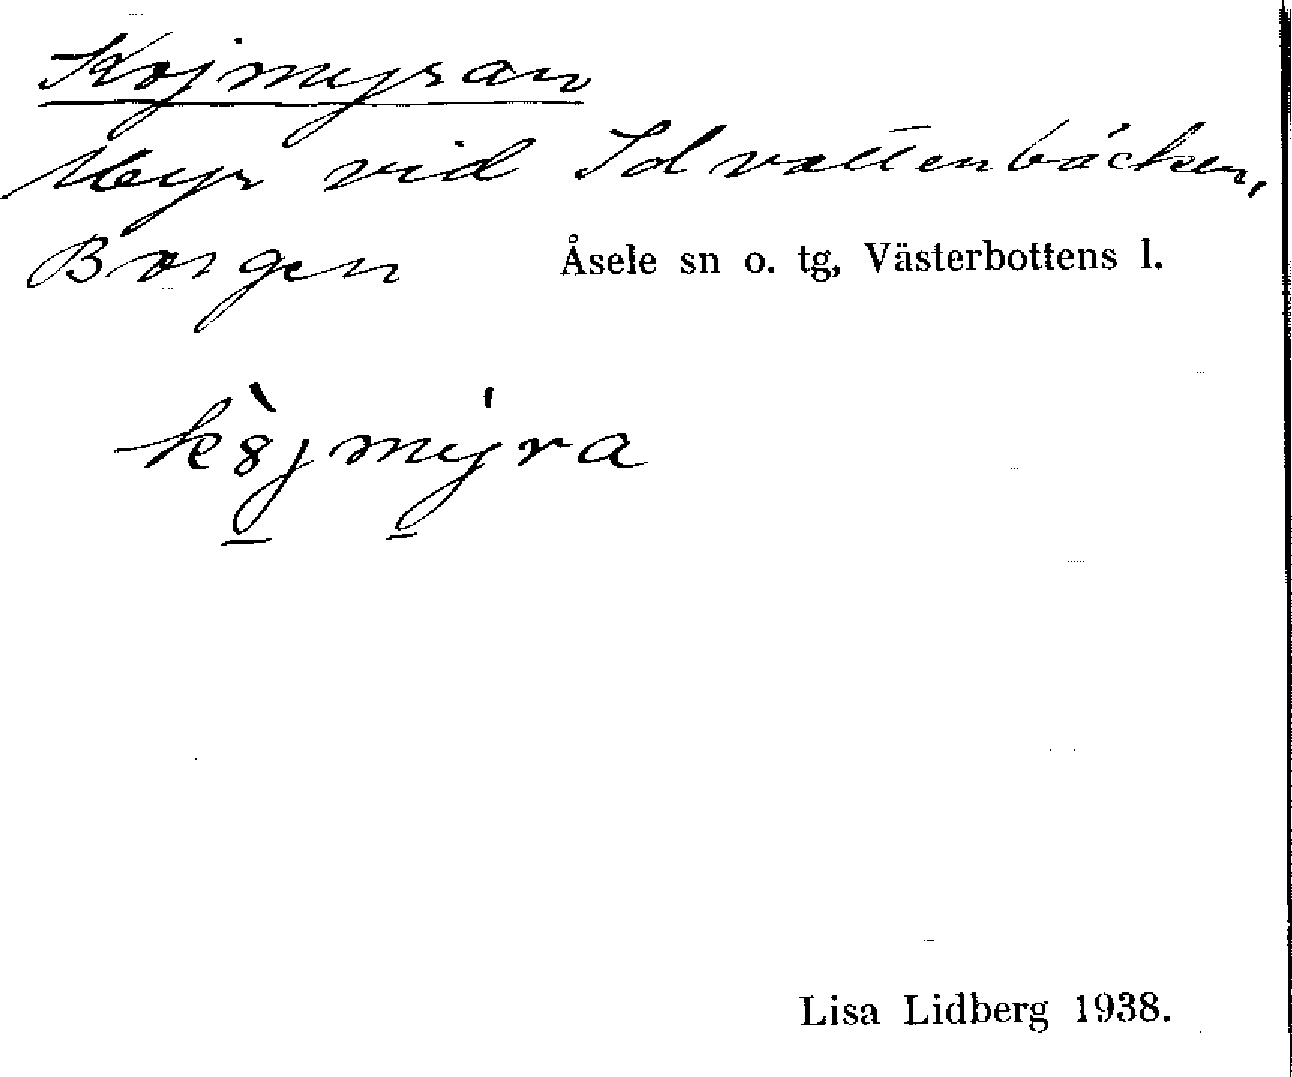 Kojmyran
Myr vid Idvattenbäcken,
Borgen Åsele sn o. tg, Västerbottens l.
Lisa Lidberg 1938.